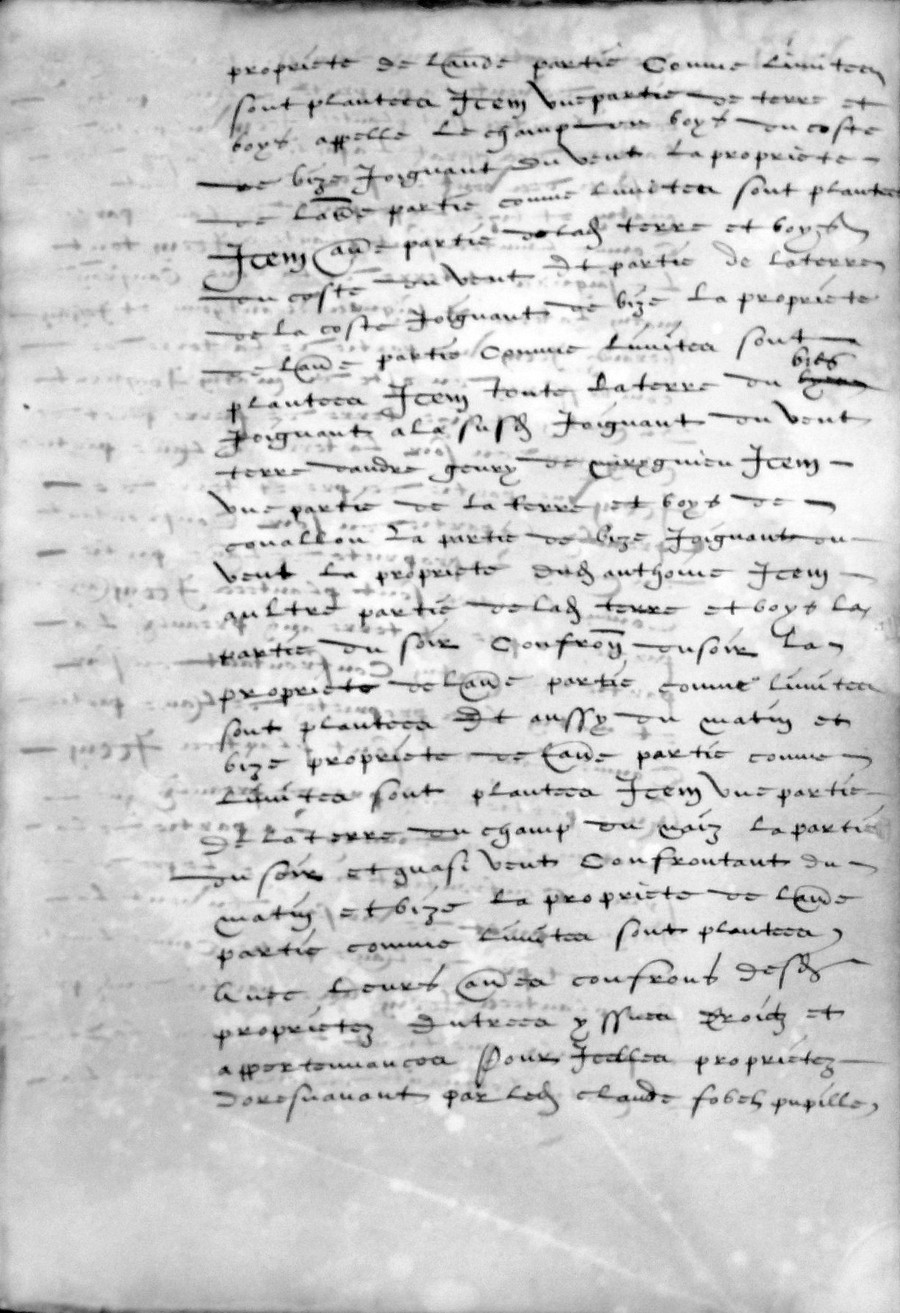 propriete de laude partie Comme limites
sont plantees Item une partie de terre et
boys appelle le champ du boys du coste
de bize Joignant du vent la propriete
de laude partie comme limites sont plantees
Item aude partie de lad terre et boys
du coste du vent Et partie de la terre
de la coste Joignant de bize la propriete
de laude partie Comme limites sont
plantees Item toute la terre du bies
Joignant a la susd Joignant du vent
terre dandre geury de Item
une partie de la terre et boys de
la partie de bize Joignant du
vent la propriete dud anthoine Item
aultre partie de lad terre et boys la
partie du soir Confron du soir la
propriete de laude partie comme limites
sont plantees Et aussy du matin et
bize propriete de laude partie comme
limites sont plantees Item une partie
de la terre du champ du la partie
du soir et quasi vent Confrontant du
matin et bize la propriete de laude
partie comme limites sont plantees
Avec leurs au͠es confrons desd
proprietez Entrees yssues droictz et
appertenances Pour Icelles proprietez
doresnavant par led claude pupille